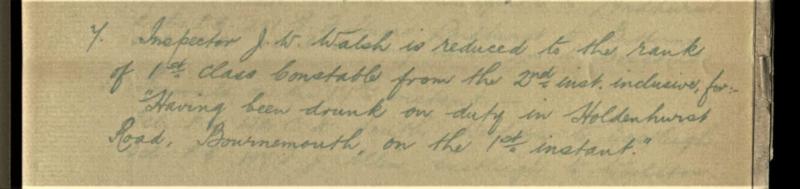 7. Inspector J. W. Walsh is reduced to the rank
of 1st class Constable from the 2nd inst. inclusive, for:-
"Having been drunk on duty in Holdenhurst
Road, Bournemouth, on the 1st instant."